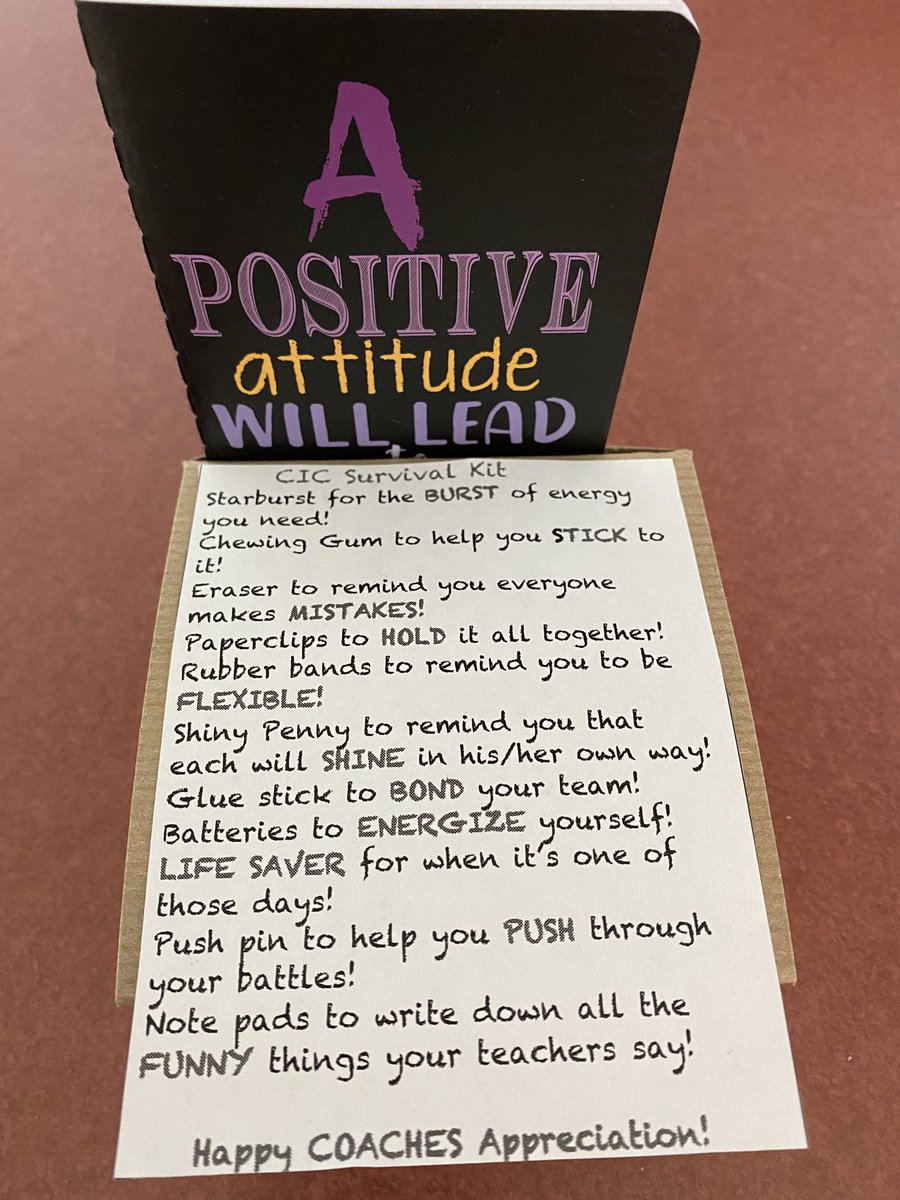 A
POSITIVE
attitude
WILL LEAD
to
CIC Survival Kit
Starburst for the BURST of energy
you need!
Chewing Gum to help you STICK to
it!
Eraser to remind you everyone
makes MISTAKES!
Paperclips to HOLD it all together!
Rubber bands to remind you to be
FLEXIBLE!
Shiny Penny to remind you that
each will SHINE in his/her own way!
Glue stick to BOND your team!
Batteries to ENERGIZE yourself!
LIFE SAVER for when it's one of
those days!
Push pin to help you PUSH through
your battles!
Note pads to write down all the
FUNNY things your teachers say!
Happy COACHES Appreciation!